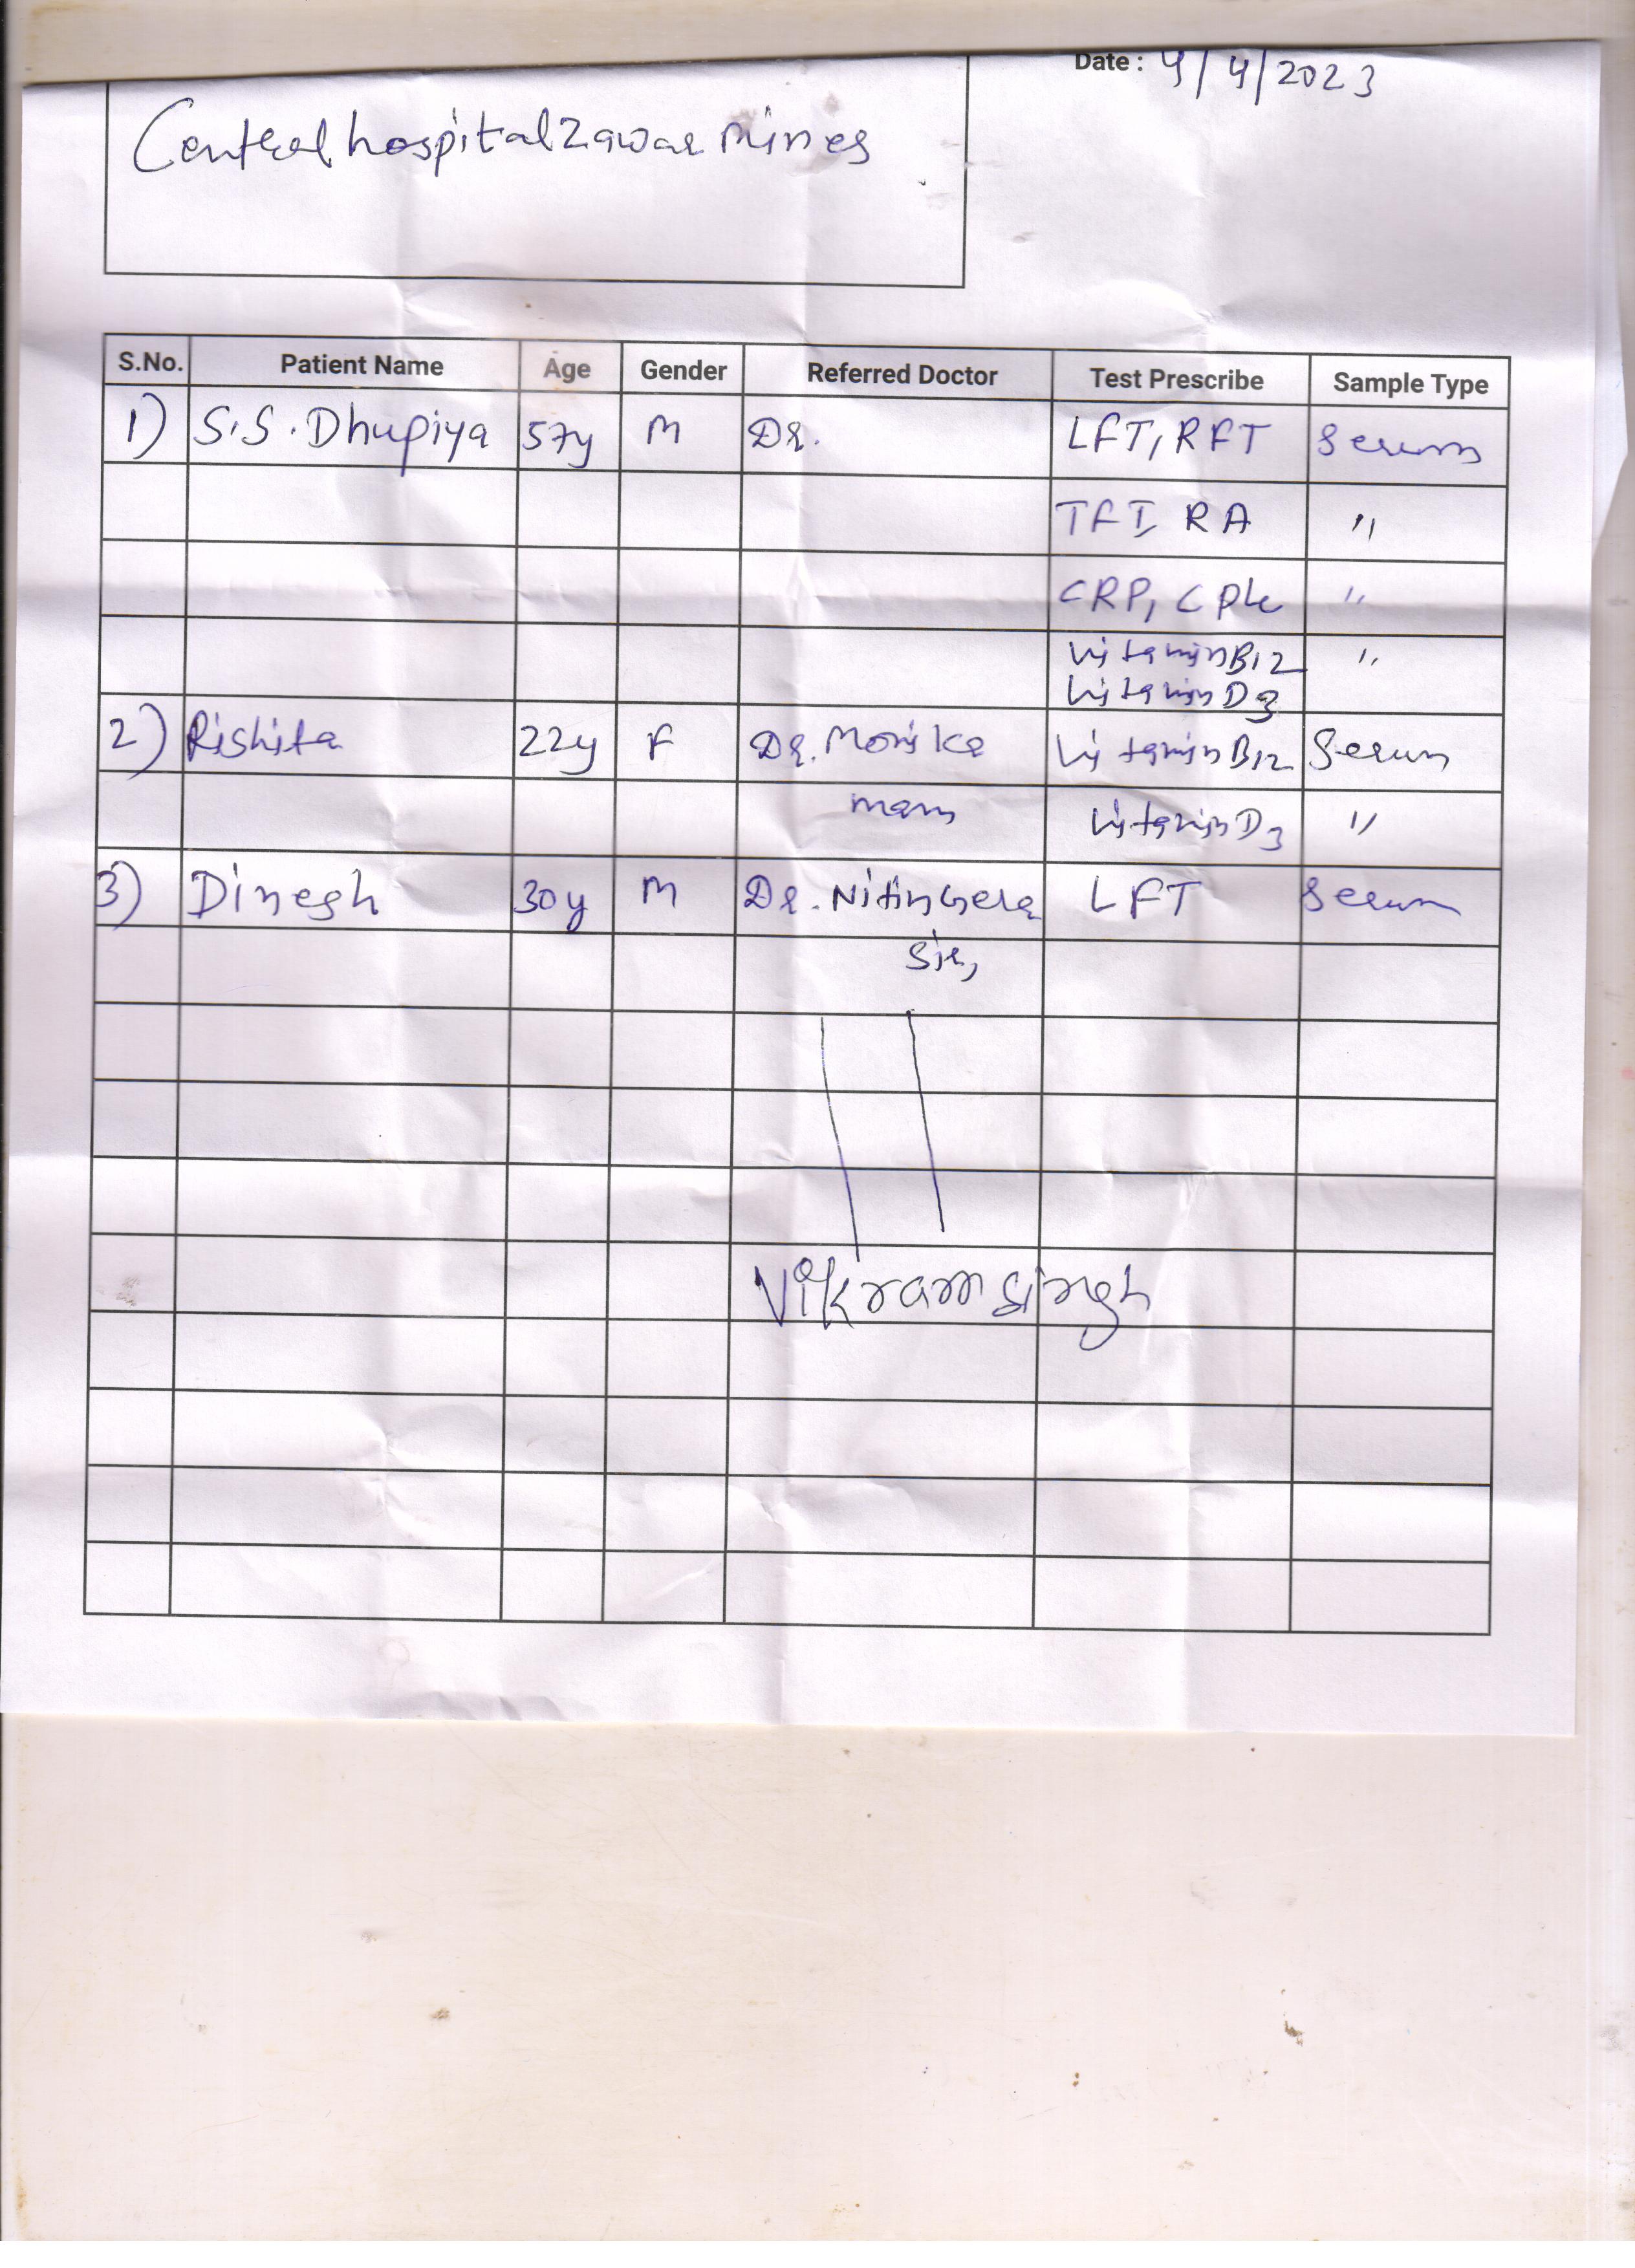 Date : 4/4/2023
Central hospital Zawar Mines
S.No. Patient Name Age Gender Referred Doctor Test Prescribe Sample Type
1) S.S. Dhupiya 57y M Dr. LFT, RFT Serum
TFT, RA "
CRP, CPK "
Vitamin B12 "
Vitamin D3
2) Rishita 22y F Dr. Monika Vitamin B12 Serum
mam Vitamin D3 "
3) Dinesh 30y M Dr. Nitin Gera LFT Serum
Sir,
Vikram singh